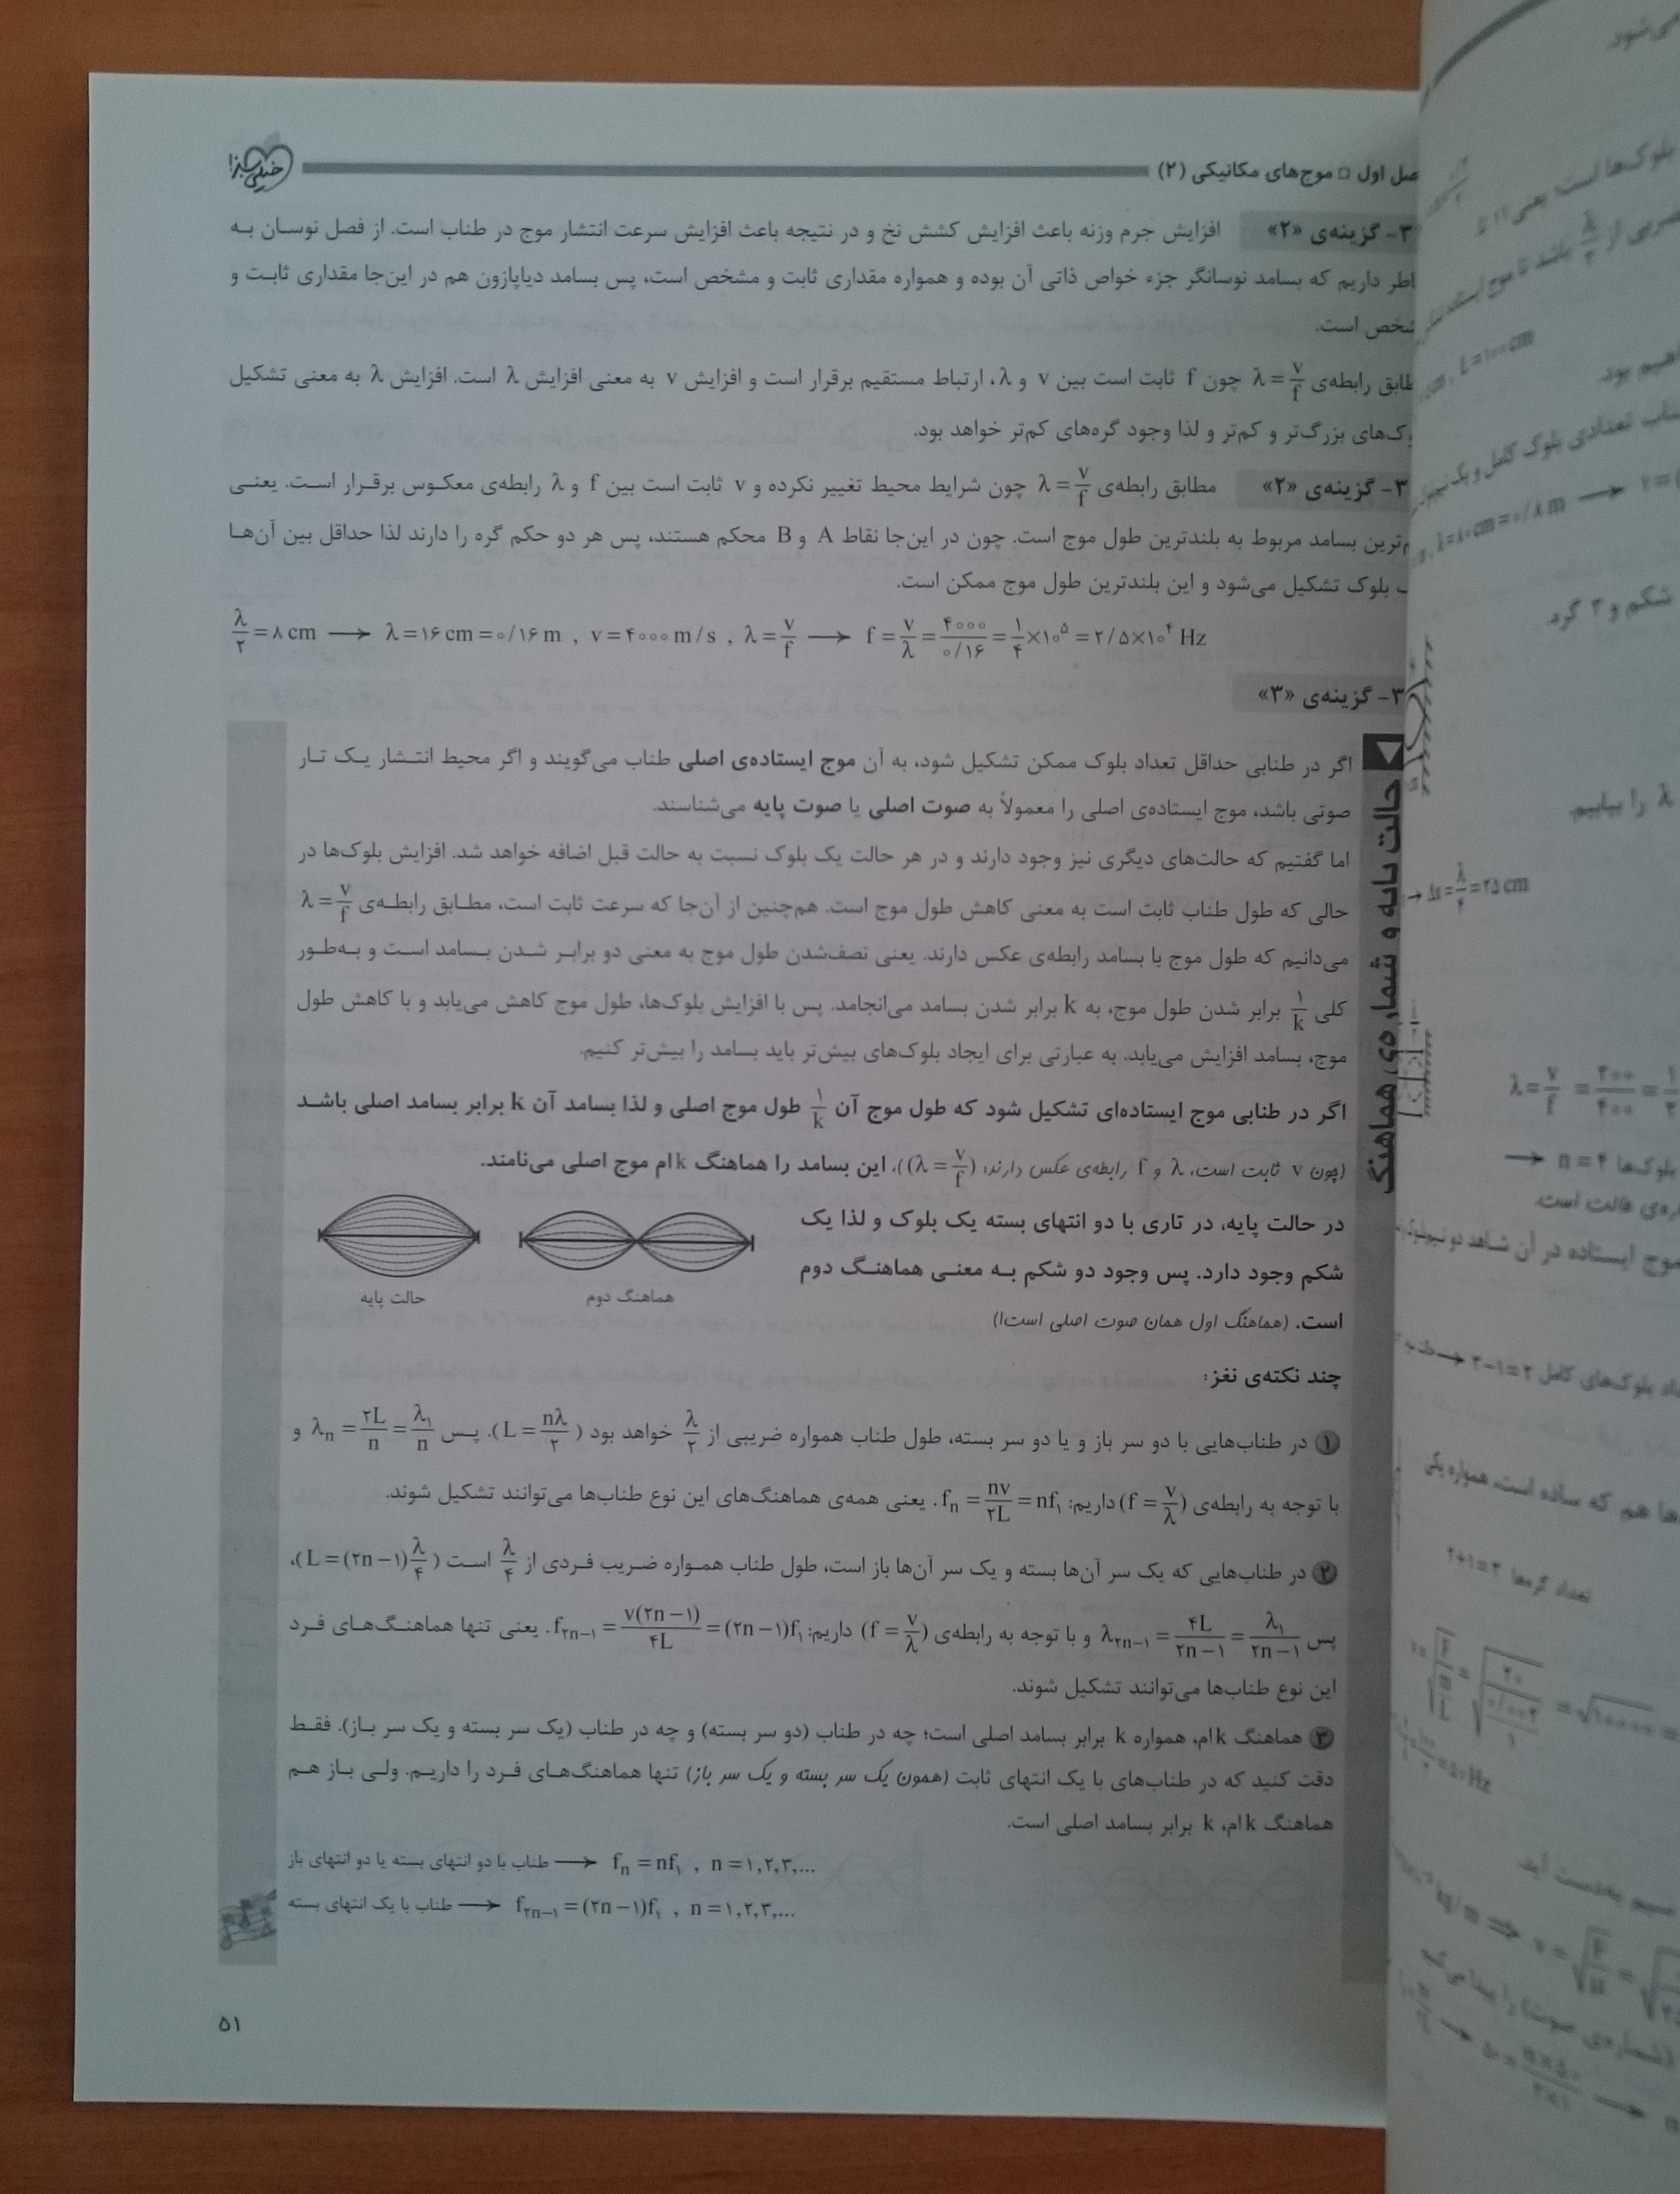 صل اول □ موج‌های مکانیکی (۲)
خیلی سبز
۳- گزینه‌ی «۲» افزایش جرم وزنه باعث افزایش کشش نخ و در نتیجه باعث افزایش سرعت انتشار موج در طناب است. از فصل نوسان به
اطر داریم که بسامد نوسانگر جزء خواص ذاتی آن بوده و همواره مقداری ثابت و مشخص است، پس بسامد دیاپازون هم در این‌جا مقداری ثابت و
شخص است.
طابق رابطه‌ی λ = v/f چون f ثابت است بین v و λ، ارتباط مستقیم برقرار است و افزایش v به معنی افزایش λ است. افزایش λ به معنی تشکیل
وک‌های بزرگ‌تر و کم‌تر و لذا وجود گره‌های کم‌تر خواهد بود.
۳- گزینه‌ی «۲» مطابق رابطه‌ی λ = v/f چون شرایط محیط تغییر نکرده و v ثابت است بین f و λ رابطه‌ی معکوس برقرار است. یعنی
م‌ترین بسامد مربوط به بلندترین طول موج است. چون در این‌جا نقاط A و B محکم هستند، پس هر دو حکم گره را دارند لذا حداقل بین آن‌ها
ـک بلوک تشکیل می‌شود و این بلندترین طول موج ممکن است.
λ/۲ = ۸ cm ⟶ λ = ۱۶ cm = ۰/۱۶ m , v = ۴۰۰۰ m/s , λ = v/f ⟶ f = v/λ = ۴۰۰۰/۰/۱۶ = ۱/۴ × ۱۰^۵ = ۲/۵ × ۱۰^۴ Hz
۳- گزینه‌ی «۳»
حالت پایه و شماره‌ی هماهنگ
اگر در طنابی حداقل تعداد بلوک ممکن تشکیل شود، به آن موج ایستاده‌ی اصلی طناب می‌گویند و اگر محیط انتشار یک تار
صوتی باشد، موج ایستاده‌ی اصلی را معمولاً به صوت اصلی یا صوت پایه می‌شناسند.
اما گفتیم که حالت‌های دیگری نیز وجود دارند و در هر حالت یک بلوک نسبت به حالت قبل اضافه خواهد شد. افزایش بلوک‌ها در
حالی که طول طناب ثابت است به معنی کاهش طول موج است. هم‌چنین از آن‌جا که سرعت ثابت است، مطابق رابطه‌ی λ = v/f
می‌دانیم که طول موج با بسامد رابطه‌ی عکس دارند. یعنی نصف‌شدن طول موج به معنی دو برابر شدن بسامد است و به‌طور
کلی ۱/k برابر شدن طول موج، به k برابر شدن بسامد می‌انجامد. پس با افزایش بلوک‌ها، طول موج کاهش می‌یابد و با کاهش طول
موج، بسامد افزایش می‌یابد. به عبارتی برای ایجاد بلوک‌های بیش‌تر باید بسامد را بیش‌تر کنیم.
اگر در طنابی موج ایستاده‌ای تشکیل شود که طول موج آن ۱/k طول موج اصلی و لذا بسامد آن k برابر بسامد اصلی باشد
(چون v ثابت است، λ و f رابطه‌ی عکس دارند؛ (λ = v/f))، این بسامد را هماهنگ kام موج اصلی می‌نامند.
در حالت پایه، در تاری با دو انتهای بسته یک بلوک و لذا یک
شکم وجود دارد. پس وجود دو شکم به معنی هماهنگ دوم
است. (هماهنگ اول همان صوت اصلی است!)
هماهنگ دوم
حالت پایه
چند نکته‌ی نغز:
۱ در طناب‌هایی با دو سر باز و یا دو سر بسته، طول طناب همواره ضریبی از λ/۲ خواهد بود (L = nλ/۲). پس λn = ۲L/n = λ۱/n و
با توجه به رابطه‌ی (f = v/λ) داریم: fn = nv/۲L = nf۱. یعنی همه‌ی هماهنگ‌های این نوع طناب‌ها می‌توانند تشکیل شوند.
۲ در طناب‌هایی که یک سر آن‌ها بسته و یک سر آن‌ها باز است، طول طناب همواره ضریب فردی از λ/۴ است (L = (۲n−۱)λ/۴)،
پس λ۲n−۱ = ۴L/۲n−۱ = λ۱/۲n−۱ و با توجه به رابطه‌ی (f = v/λ) داریم: f۲n−۱ = v(۲n−۱)/۴L = (۲n−۱)f۱. یعنی تنها هماهنگ‌های فرد
این نوع طناب‌ها می‌توانند تشکیل شوند.
۳ هماهنگ kام، همواره k برابر بسامد اصلی است؛ چه در طناب (دو سر بسته) و چه در طناب (یک سر بسته و یک سر باز). فقط
دقت کنید که در طناب‌های با یک انتهای ثابت (همون یک سر بسته و یک سر باز) تنها هماهنگ‌های فرد را داریم. ولی باز هم
هماهنگ kام، k برابر بسامد اصلی است.
طناب با دو انتهای بسته یا دو انتهای باز ⟶ fn = nf۱ , n = ۱,۲,۳,...
طناب با یک انتهای بسته ⟶ f۲n−۱ = (۲n−۱)f۱ , n = ۱,۲,۳,...
۵۱
می‌شود
بلوک‌ها است، یعنی
باشد تا موج ایستاده
L = ۱۰۰ cm
اهیم بود.
تعدادی بلوک کامل و یک نیم
شکم و ۳ گره.
λ را بیابیم.
→ Δx = λ/۴ = ۲۵ cm
λ = v/f = ۲۰۰/۴۰۰ = ۱/۲
بلوک‌ها n = ۴ ⟶
موج ایستاده در آن شاهد دو نیم‌بلوک
بلوک‌های کامل ۳−۱=۲
ها هم که ساده است، همواره یکی
تعداد گره‌ها
سیم به‌دست آید